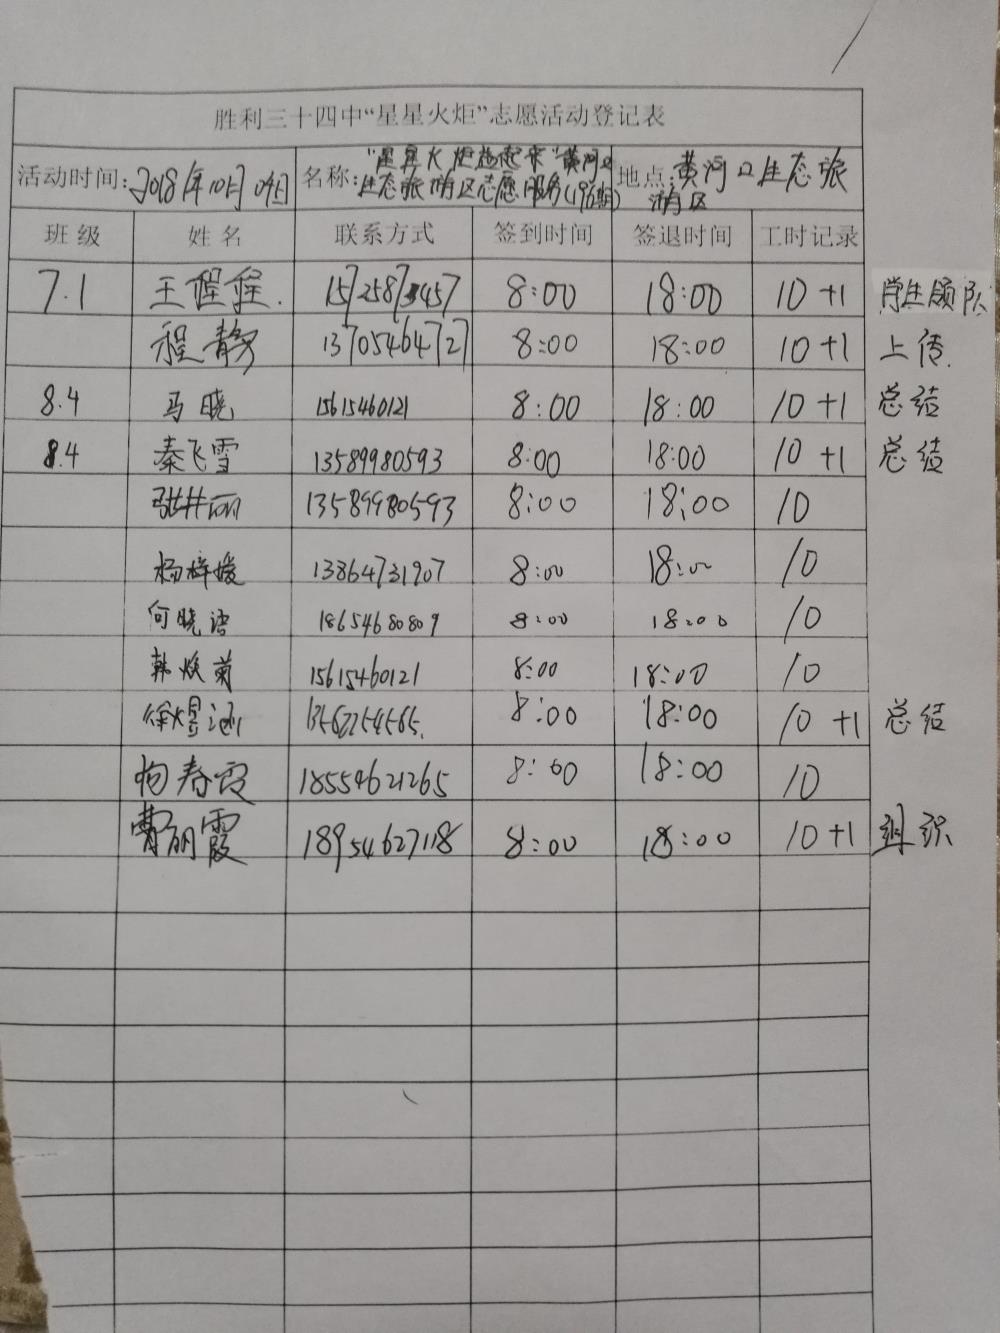 胜利三十四中“星星火炬”志愿活动登记表
活动时间:2018年10月04日 名称:“星星火炬 黄河口生态 区志愿服务(196期) 地点:黄河口生态 区
班级 姓名 联系方式 签到时间 签退时间 工时记录
7.1 王 8:00 18:00 10+1 学生领队
程静 13705464727 8:00 18:00 10+1 上传
8.4 马晓 15615460121 8:00 18:00 10+1 总结
8.4 秦飞雪 13589980593 8:00 18:00 10+1 总结
张井丽 13589980593 8:00 18:00 10
杨梓媛 13864731907 8:00 18:00 10
何晓语 18654680809 8:00 18:00 10
韩焕菊 15615460121 8:00 18:00 10
徐煜涵 8:00 18:00 10+1 总结
杨春霞 18554621265 8:00 18:00 10
曹丽霞 18954627118 8:00 18:00 10+1 组织